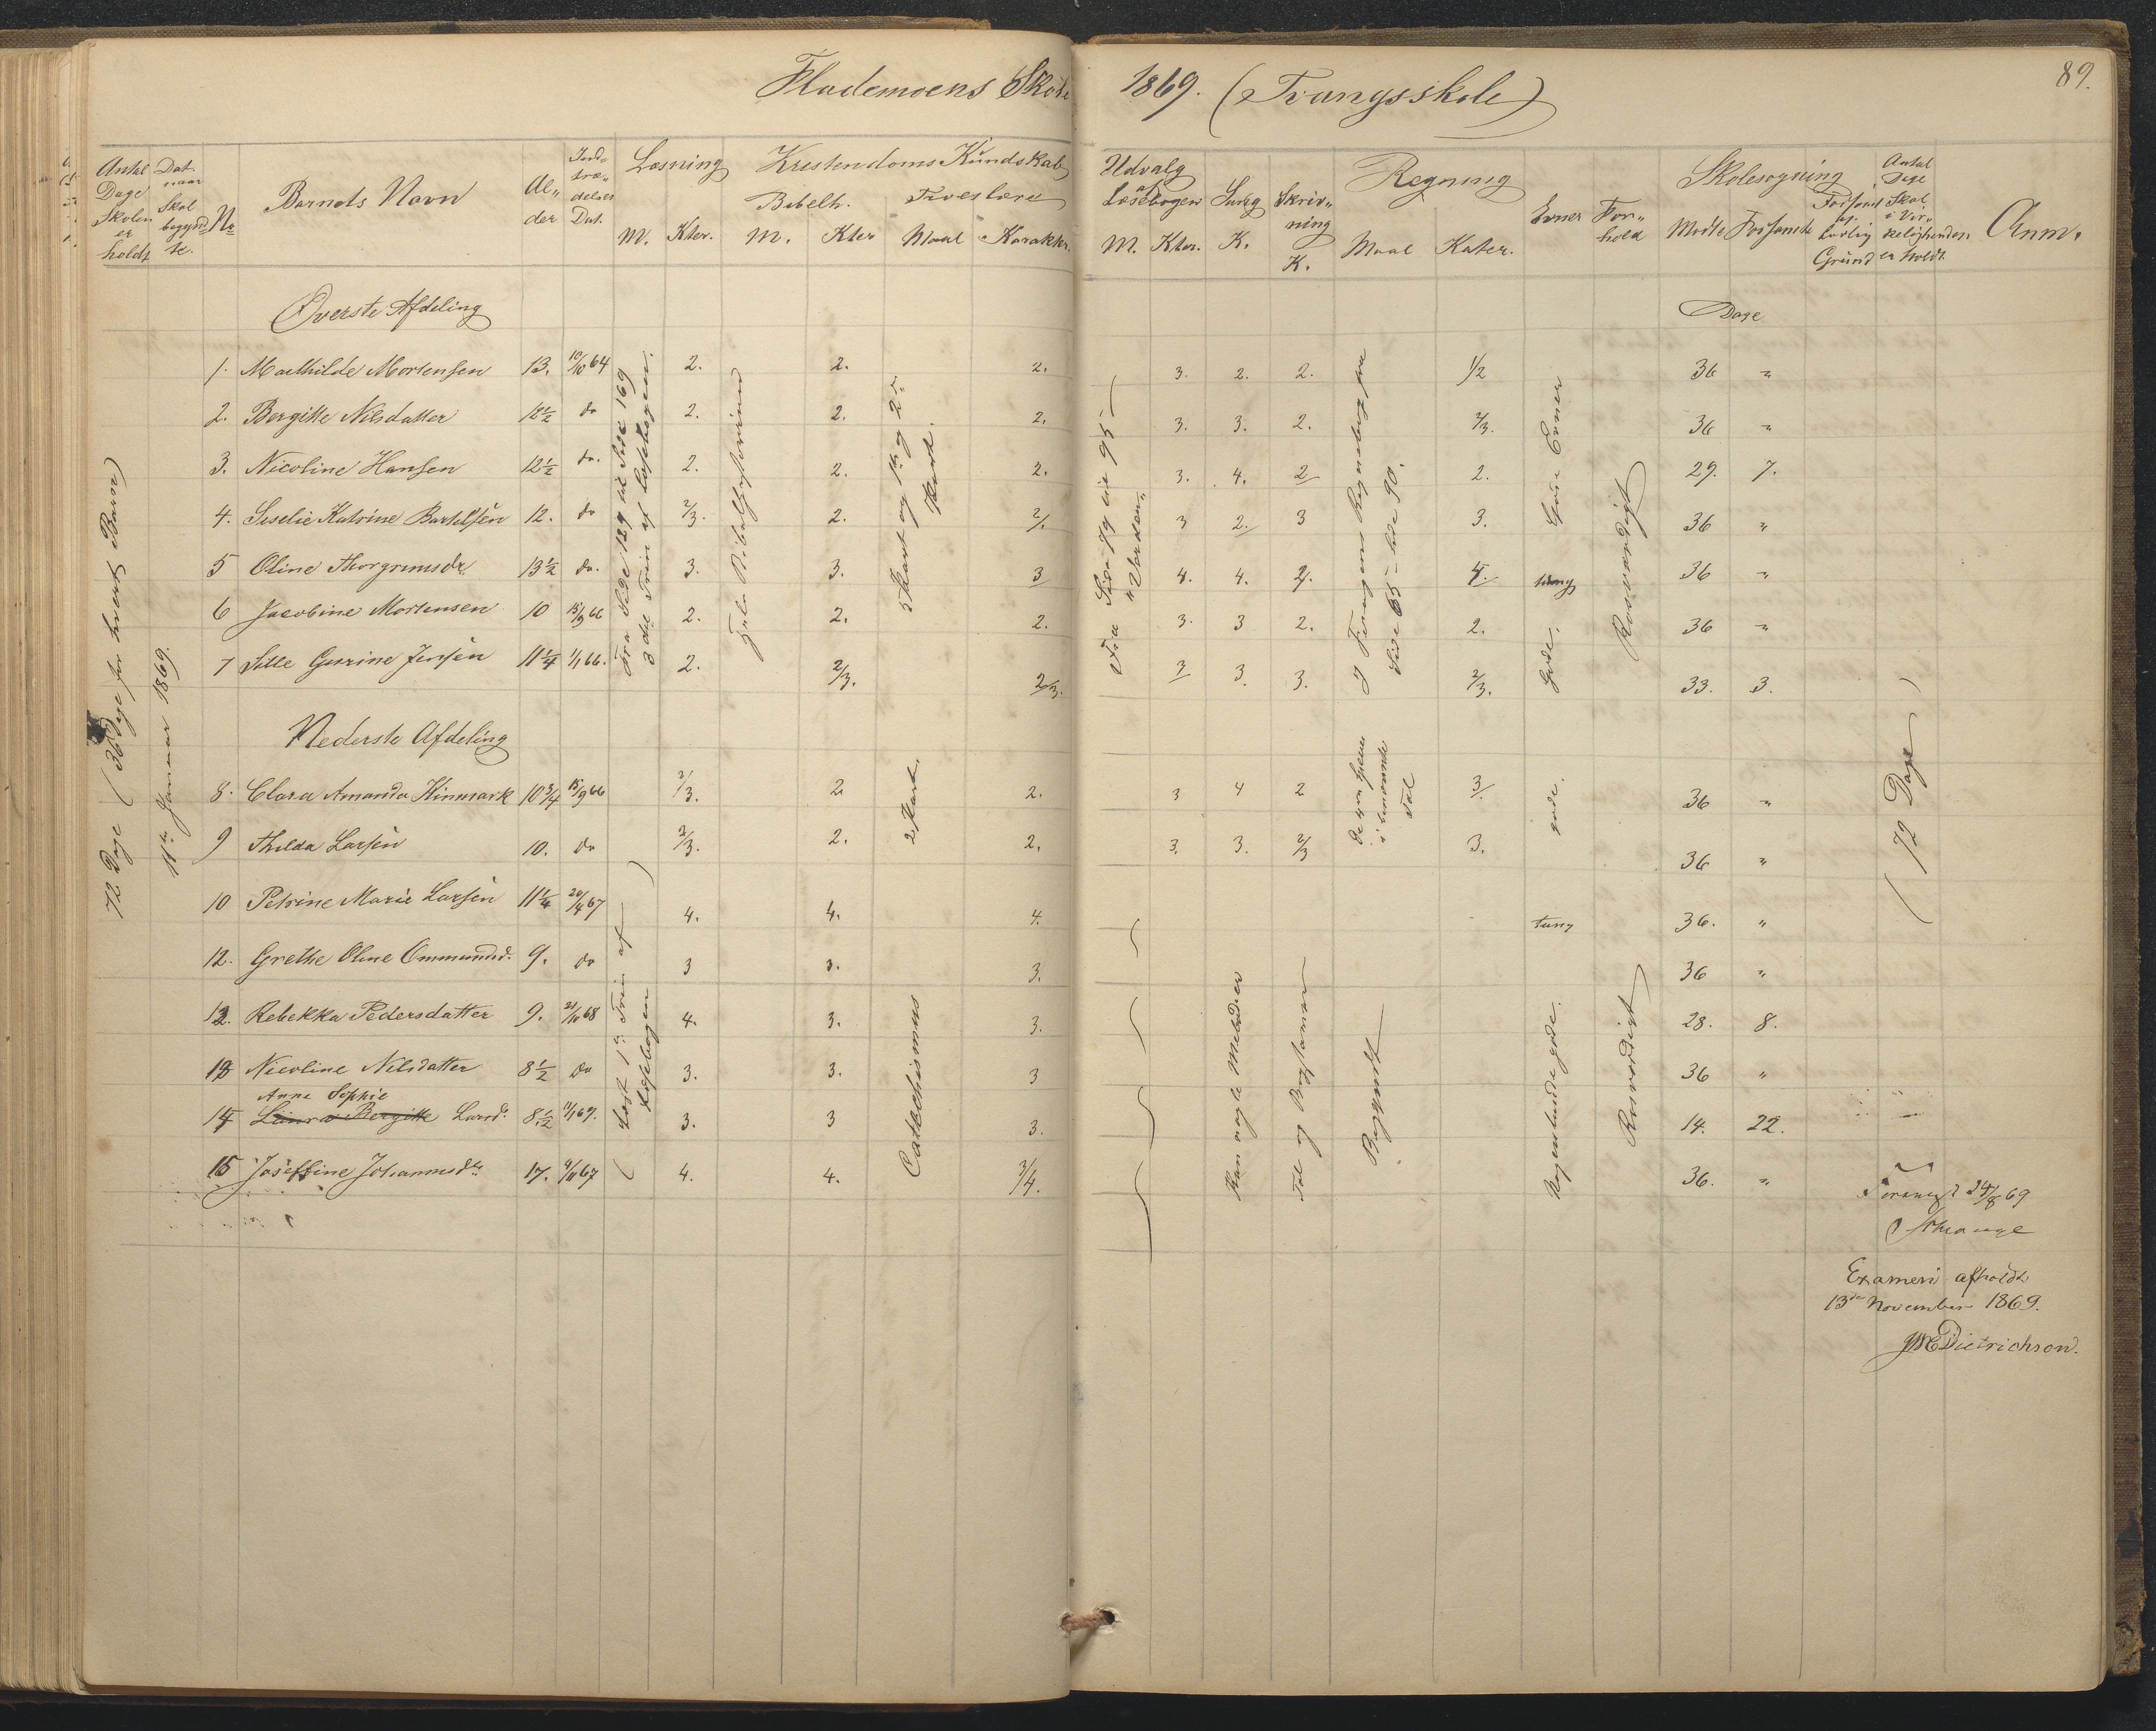 Flademoens Skole 1869. (Tvangsskole) 89.
Antal Dage Skolen er holdt
Dat. naar Skol begyndte.
No
Barnets Navn
Al„der
Ind„træ„delses Dat.
Læsning
M. Kter.
Kristendoms Kundskab
Bibelh. Troeslære
M. Kter Maal Karakter.
Udvalg af Læsebogen
M. Kter.
Sang
K.
Skriv„ning
K.
Regning
Maal Karter.
Evner
For„hold
Skolesøgning
Mødte Forsømte Forsømt af lovlig Grund
Antal Dage Skol i Vir„keligheden er holdt.
Anm.
72 Dage (36 Dage for hvert Barn)
11te Januar 1869.
Øverste Afdeling
Dage
Fra Side 129 til Side 169 3die Trin af Læsebogen.
Hele Bibelhistorien
Fra Side 79 til 95 "Verden"
Gode Evner
Rosværdigt
1. Mathilde Mortensen 13. 10/10 64 2. 2. 2. 3. 2. 2. 1/2 36 "
2. Bergitte Nilsdatter 12½ do 2. 2. 2. 3. 3. 2. 2/3. 36 "
3. Nicoline Hansen 12½ do. 2. 2. 2. 3. 4. 2 2. 29. 7.
4. Seselie Katrine Bartelsen 12. do 2/3. 2. 2/. 3 2. 3 3. 36 "
5 Oline Thorgrimsdr 13½ do. 3. 3. 3 4. 4. 2. 4. tung 36 "
6 Jacobine Mortensen 10 15/9 66 2. 2. 2. 3. 3 2. 2. Gode. 36 "
7 Sille Gurine Jensen 11¼ 1/1 66. 2. 2/3. 2/3. 3 3. 3. 2/3. 33. 3.
Nederste Afdeling
8. Clara Amanda Kinmark 10¾ 15/9 66 2/3. 2 2. 3 4 2 3/. gode. 36 "
9 Thilda Larsen 10. do 2/3. 2. 2. 3. 3. 2/3 3. 36 "
2 Part.
(72 Dage)
10 Petrine Marie Larsen 11¼ 20/4 67 4. 4. 4. tung 36. "
12. Grethe Oline Ommundsd. 9. do 3 3. 3. 36 "
12. Rebekka Pedersdatter 9. 21/10 68 4. 3. 3. 28. 8.
13 Nicoline Nilsdatter 8½ do 3. 3. 3 36 "
Anne Sophie
14 Laura Bergitte Larsd. 8½ 11/1 69. 3. 3 3. 14. 22.
15 Joseffine Johannesdr 17. 4/11 67 4. 4. 3/4. 36. "
Læst 1ste Trin af Læsebogen
Cathechismus
Kan nogle Melodier
Tal og Bogstaver
Begyndt
Nogenlunde gode.
Rosværdigt
24/8 69
Examen afholdt
13de November 1869.
JMCDietrichson.